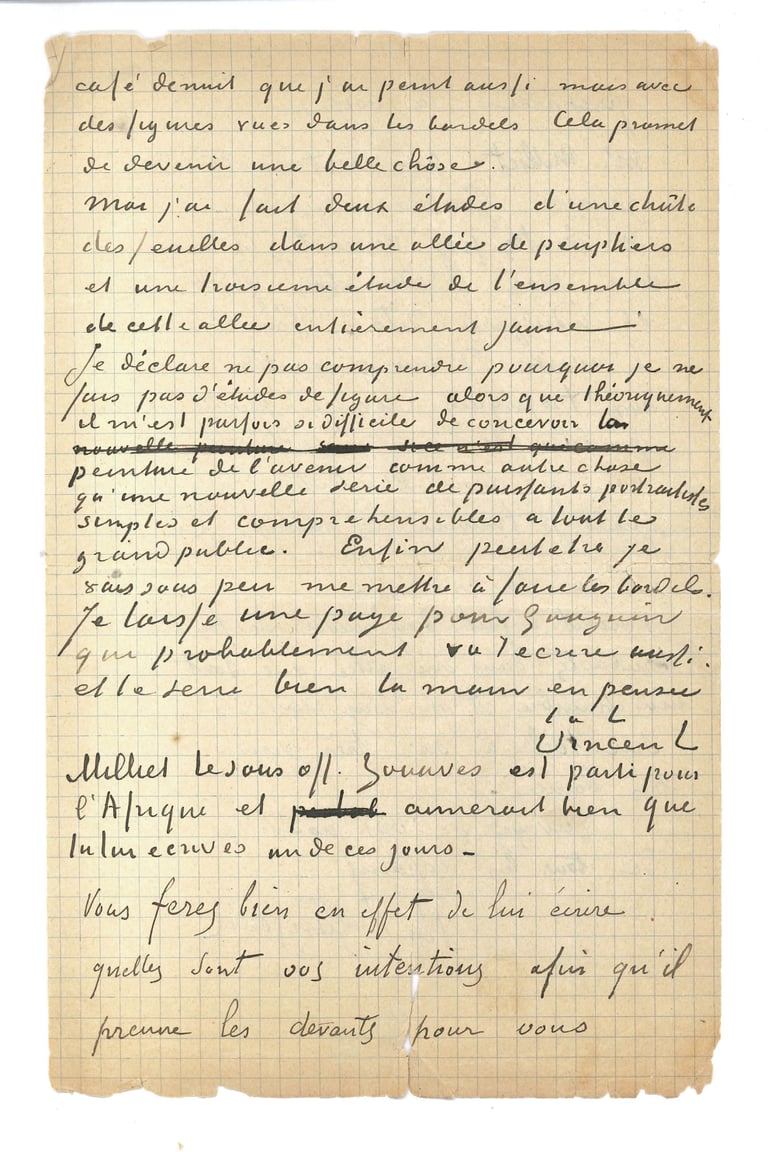 café de nuit que j'ai peint aussi mais avec
des figures vues dans les bordels Cela promet
de devenir une belle chôse.
Moi j'ai fait deux études d'une chûte
des feuilles dans une allée de peupliers
et une troisieme étude de l'ensemble
de cette allée entièrement jaune
Je déclare ne pas comprendre pourquoi je ne
fais pas d'études de figure alors que théoriquement
il m'est parfois si difficile de concevoir la
nouvelle peinture sans si ce n'est que comme
peinture de l'avenir comme autre chose
qu'une nouvelle serie de puissants portraitistes
simples et comprehensibles a tout le
grand public. Enfin peutetre je
vais sous peu me mettre à faire les bordels.
Je laisse une page pour Gauguin
qui probablement va t'ecrire aussi.
et te serre bien la main en pensée
t à t
Vincent
Milliet le sous off. Zouaves est parti pour
l'Afrique et aimerait bien que
tu lui ecrives un de ces jours_
Vous ferez bien en effet de lui écrire
quelles sont vos intentions afin qu'il
prenne les devants pour vous